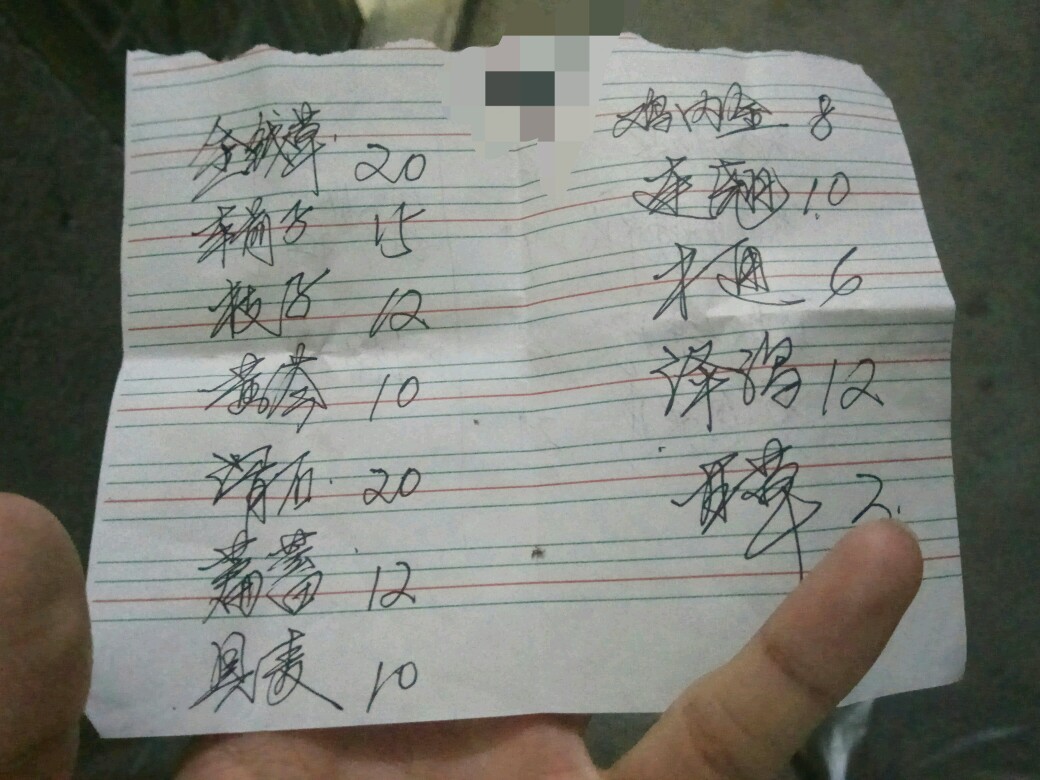 金钱草 20
车前子 15
枝子 12
黄芩 10
滑石 20
萹蓄 12
瞿麦 10
鸡内金 8
连翘 10
木通 6
泽泻 12
甘草 2